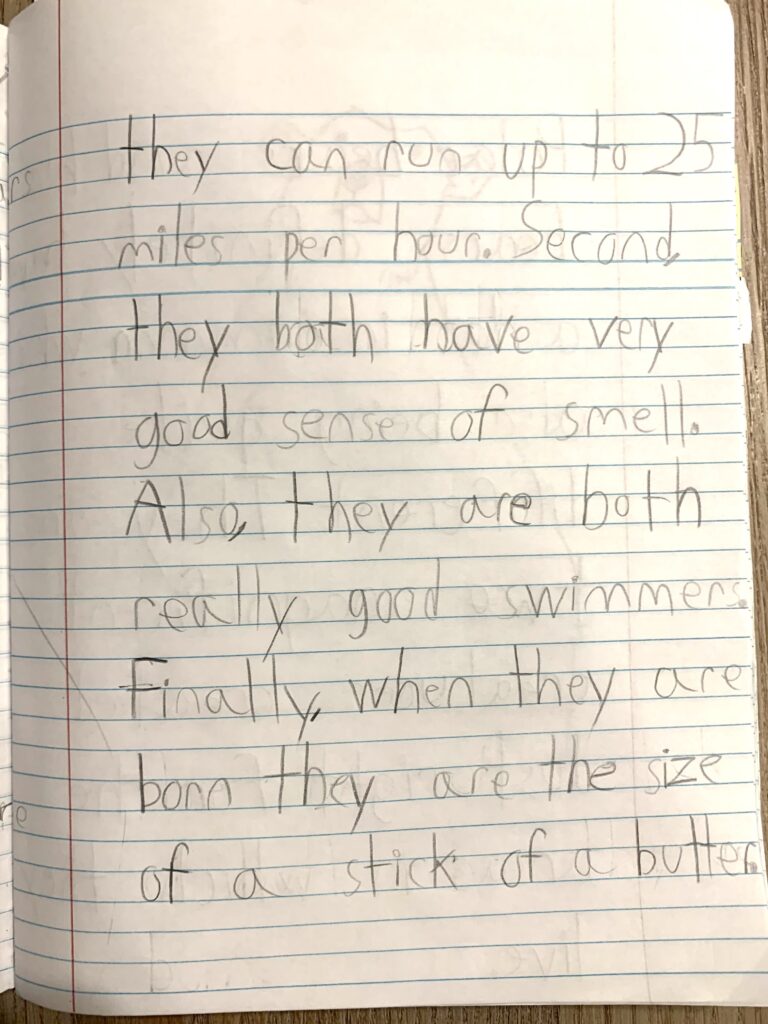 they can run up to 25
miles per hour. Second,
they both have very
good sense of smell.
Also, they are both
really good swimmers.
Finally, when they are
born they are the size
of a stick of a butter.